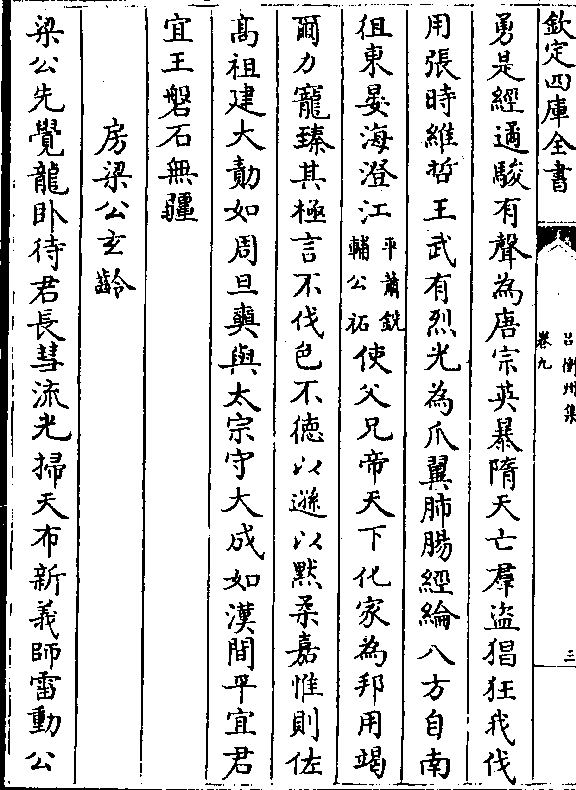 欽定四庫全書
呂衡州集
卷九
三
勇是經遹駿有聲為唐宗英暴隋天亡羣盜猖狂我伐
用張時維哲王武有烈光為爪翼肺腸經綸八方自南
徂東晏海澄江平蕭銑輔公祏使父兄帝天下化家為邦用竭
爾力寵臻其極言不伐色不德以遜以默柔嘉惟則佐
高祖建大勳如周旦奭與太宗守大成如漢間平宜君
宜王磐石無疆
房梁公玄齡
梁公先覺龍卧待君長彗流光掃天布新義師雷動公